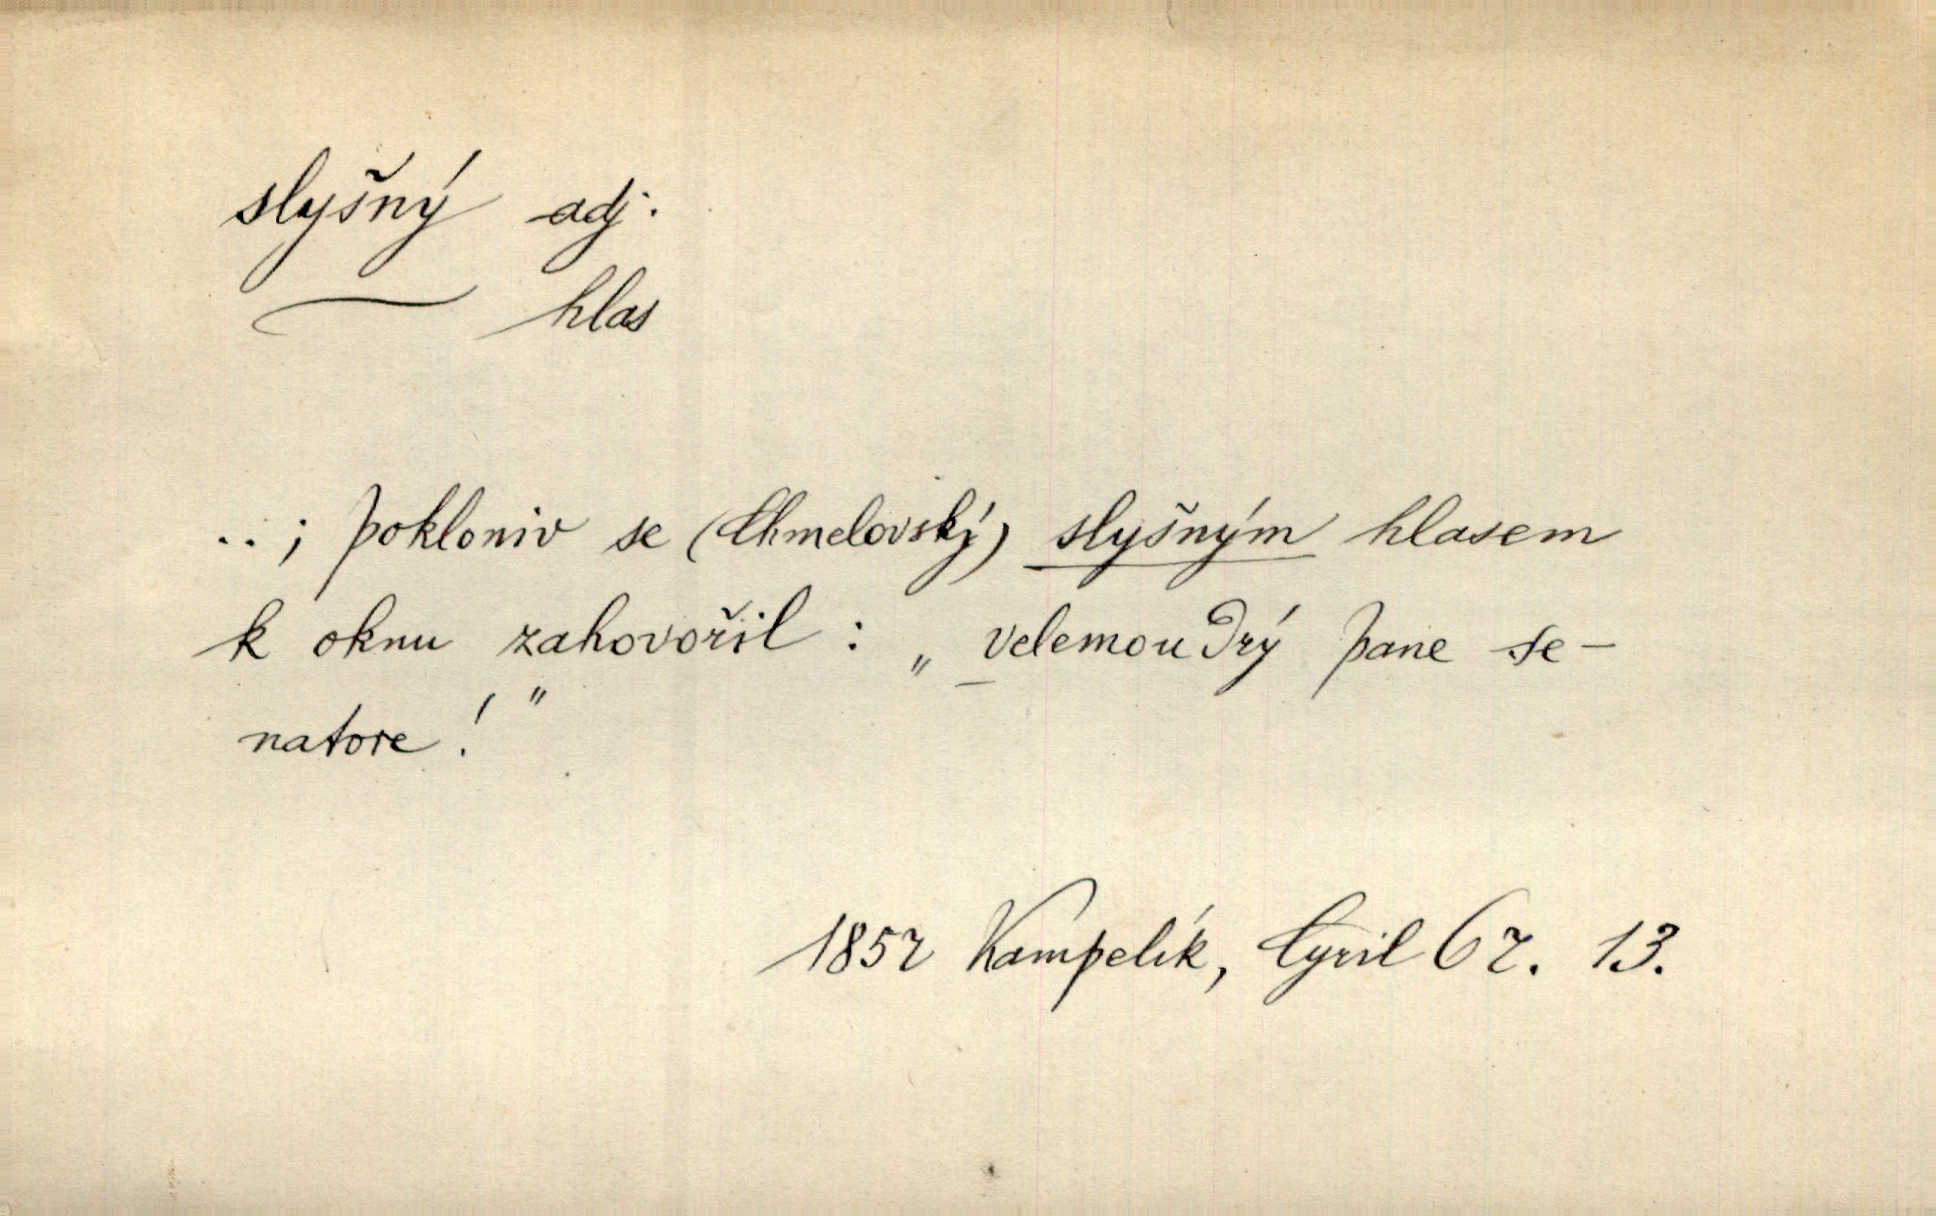 slyšný adj.
hlas
..; pokloniv se (Chmelovský) slyšným hlasem
k oknu zahovořil : „ velemoudrý pane se-
natore ! "
1852 Kampelík, Cyril 62. 13.